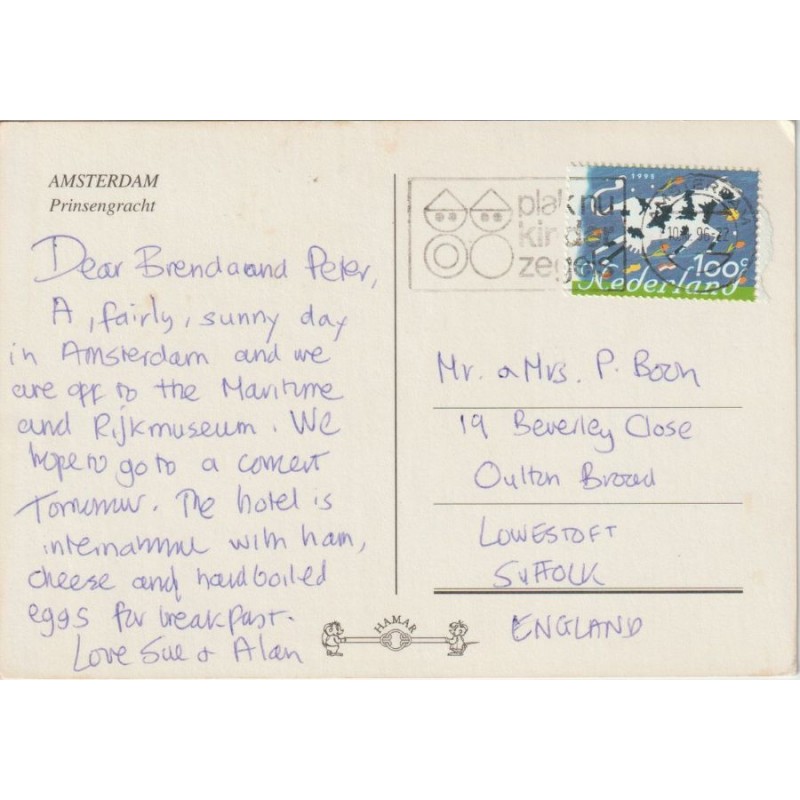 AMSTERDAM
Prinsengracht
Dear Brenda and Peter,
A, fairly, sunny day
in Amsterdam and we
are off to the Maritime
and Rijkmuseum. We
hope to go to a concert
Tomorrow. The hotel is
international with ham,
cheese and hardboiled
eggs for breakfast.
Love Sue & Alan
HAMAR
plak nu
kinder
zegels
1995
100c
Nederland
Mr. & Mrs. P. Boon
19 Beverley Close
Oulton Broad
LOWESTOFT
SUFFOLK
ENGLAND